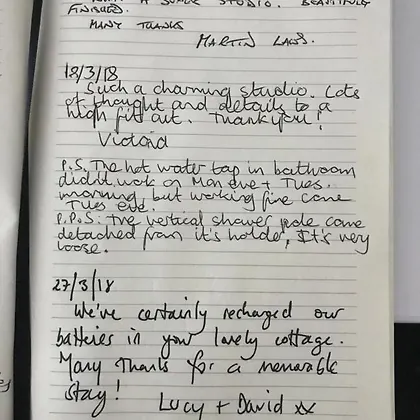 A SUPER STUDIO. BEAUTIFULLY
FINISHED.
MANY THANKS
MARTIN LAWS.
18/3/18
Such a charming studio. Lots
of thought and details to a
high fit out. Thankyou!
Victoria
P.S. The hot water tap in bathroom
didn't work on Mon eve + Tues.
morning but working fine come
Tues eve.
P.P.S: the vertical shower pole came
detached from it's holder, It's very
loose.
27/3/18
We've certainly recharged our
batteries in your lovely cottage.
Many Thanks for a memorable
stay!
Lucy + David xx